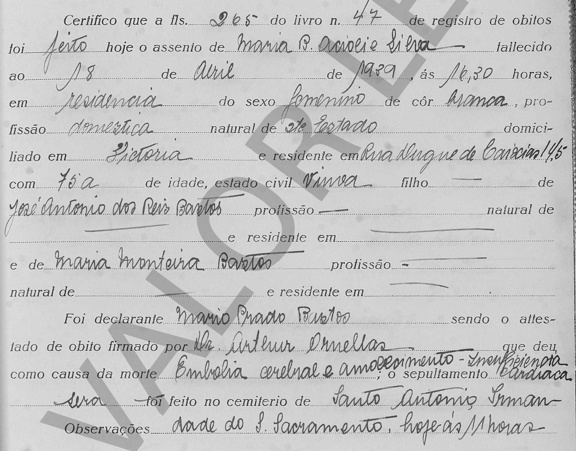 Certifico que a fls. 265 do livro n. 47 de registro de obitos
foi feito hoje o assento de Maria B. Acioli e Silva fallecido
ao 18 de Abril de 1939, ás 16,30 horas,
em residencia do sexo femenino de côr branca, pro-
fissão domestica natural de ste Estado domici-
liado em Victoria e residente em Rua Duque de Caxias 145
com 75 a de idade, estado civil Viuva filho — de
José Antonio dos Reis Bastos profissão — natural de
— e residente em —
e de Maria Monteira Bastos profissão -
natural de — e residente em —
Foi declarante Mario Prado Bastos sendo o attes-
tado de obito firmado por Dr. Arthur Ornellas que deu
como causa da morte Embolia cerebral e amolecimento - Insufficiencia Cardiaca
; o sepultamento será foi feito no cemiterio de Santo Antonio Irman-
Observações dade do S. Sacramento, hoje ás 11 horas
VALOR LE